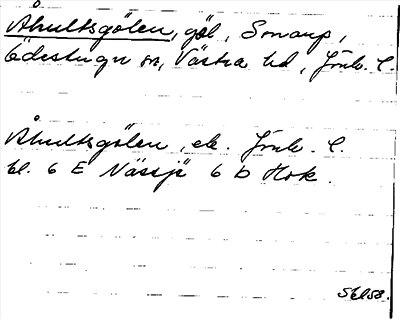 Åhultsgölen, göl, Smarp,
Ödestugu sn, Västra hd, Jönk. l.
Åhultsgölen, ek. Jönk. l.
bl. 6 E Nässjö 6 b Hok.